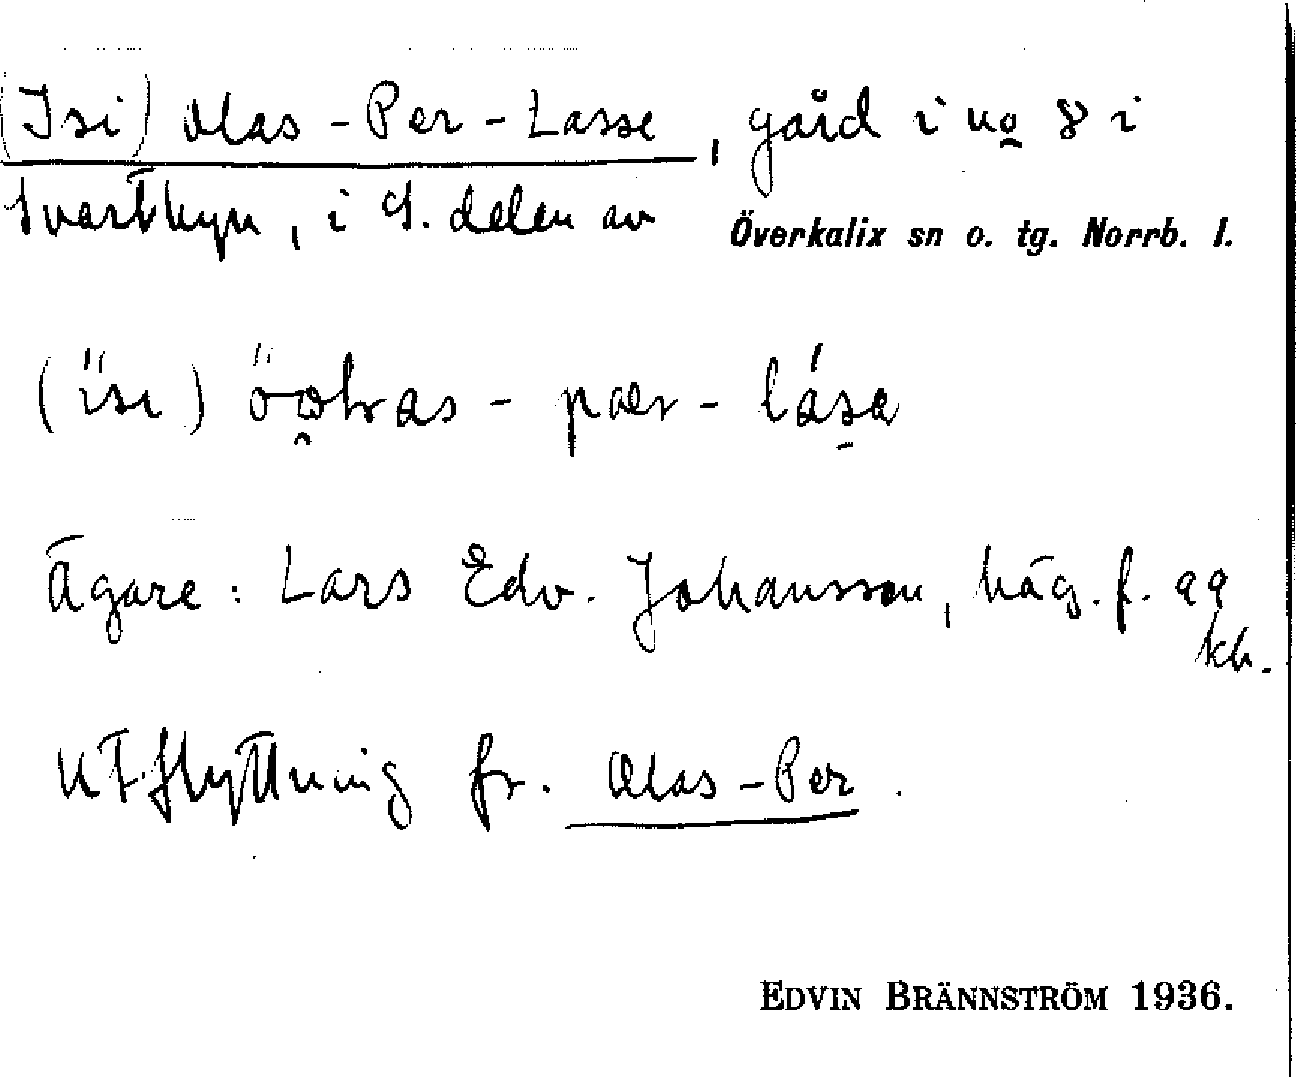 (Isi) Olas-Per-Lasse, gård i no 8 i
Svartbyn, i S. delen av Överkalix sn o. tg. Norrb. l.
(isi) - pær - låsa
Ägare: Lars Edv. Johansson, häg. f. 99
kh.
Utflyttning fr. Olas-Per.
EDVIN BRÄNNSTRÖM 1936.